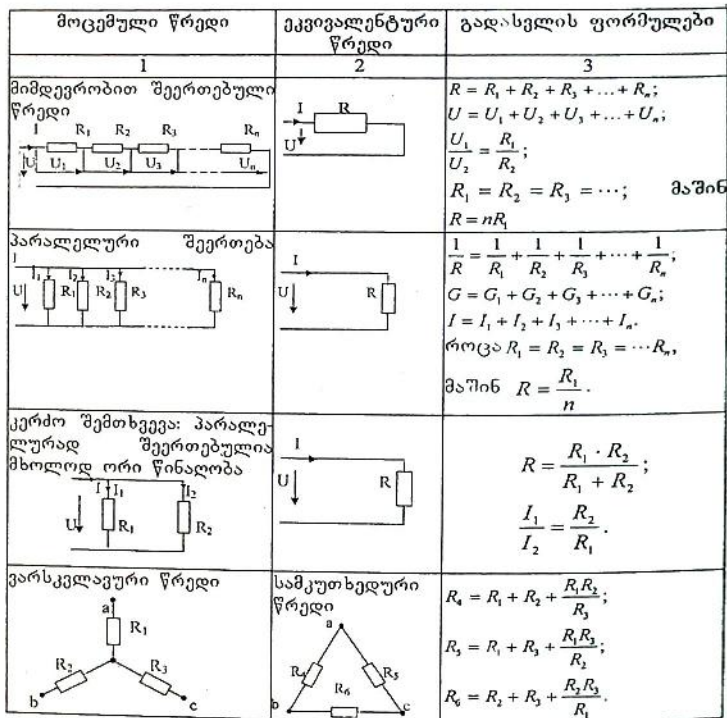 მოცემული წრედი
ეკვივალენტური
წრედი
გადასვლის ფორმულები
1
2
3
მიმდევრობით შეერთებული
წრედი
I R₁ R₂ R₃ Rₙ
U U₁ U₂ U₃ Uₙ
I R
U
R = R₁ + R₂ + R₃ + ... + Rₙ;
U = U₁ + U₂ + U₃ + ... + Uₙ;
U₁/U₂ = R₁/R₂;
R₁ = R₂ = R₃ = ⋯; მაშინ
R = nR₁
პარალელური შეერთება
I
I₁ I₂ I₃ Iₙ
U R₁ R₂ R₃ Rₙ
I
U R
1/R = 1/R₁ + 1/R₂ + 1/R₃ + ⋯ + 1/Rₙ;
G = G₁ + G₂ + G₃ + ⋯ + Gₙ;
I = I₁ + I₂ + I₃ + ⋯ + Iₙ.
როცა R₁ = R₂ = R₃ = ⋯Rₙ,
მაშინ R = R₁/n.
კერძო შემთხვევა: პარალე-
ლურად შეერთებულია
მხოლოდ ორი წინაღობა
I I₁ I₂
U R₁ R₂
I
U R
R = R₁ · R₂/(R₁ + R₂);
I₁/I₂ = R₂/R₁.
ვარსკვლავური წრედი
a
R₁
R₂ R₃
b c
სამკუთხედური
წრედი
a
R₄ R₅
R₆
b c
R₄ = R₁ + R₂ + R₁R₂/R₃;
R₅ = R₁ + R₃ + R₁R₃/R₂;
R₆ = R₂ + R₃ + R₂R₃/R₁